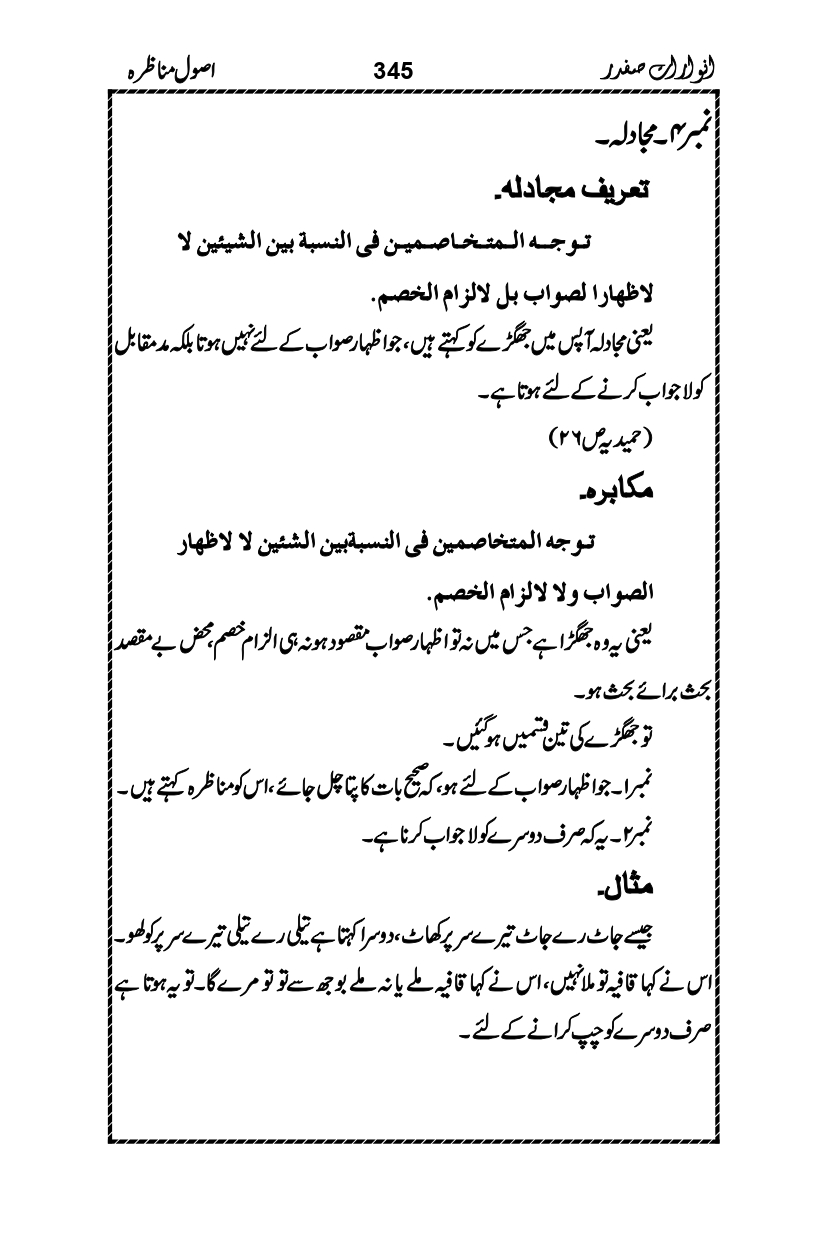 انوارات صفدر 345 اصول مناظرہ
نمبر۴۔مجادلہ۔
تعریف مجادلہ۔
توجہ المتخاصمین فی النسبة بین الشیئین لا
لاظھارا لصواب بل لالزام الخصم.
یعنی مجادلہ آپس میں جھگڑے کو کہتے ہیں، جو اظہار صواب کے لئے نہیں ہوتا بلکہ مدمقابل
کو لاجواب کرنے کے لئے ہوتا ہے۔
(حمیدیہ ص۲۶)
مکابرہ۔
توجہ المتخاصمین فی النسبةبین الشئین لا لاظھار
الصواب ولا لالزام الخصم.
یعنی یہ وہ جھگڑا ہے جس میں نہ تو اظہار صواب مقصود ہو نہ ہی الزام خصم، محض بے مقصد
بحث برائے بحث ہو۔
تو جھگڑے کی تین قسمیں ہوگئیں۔
نمبر۱۔جو اظہار صواب کے لئے ہو، کہ صحیح بات کا پتا چل جائے، اس کو مناظرہ کہتے ہیں۔
نمبر۲۔ یہ کہ صرف دوسرے کو لاجواب کرنا ہے۔
مثال۔
جیسے جاٹ رے جاٹ تیرے سر پر کھاٹ، دوسرا کہتا ہے تیلی رے تیلی تیرے سر پر کولھو۔
اس نے کہا قافیہ تو ملا نہیں، اس نے کہا قافیہ ملے یا نہ ملے بوجھ سے تو تو مرے گا۔تو یہ ہوتا ہے
صرف دوسرے کو چپ کرانے کے لئے۔